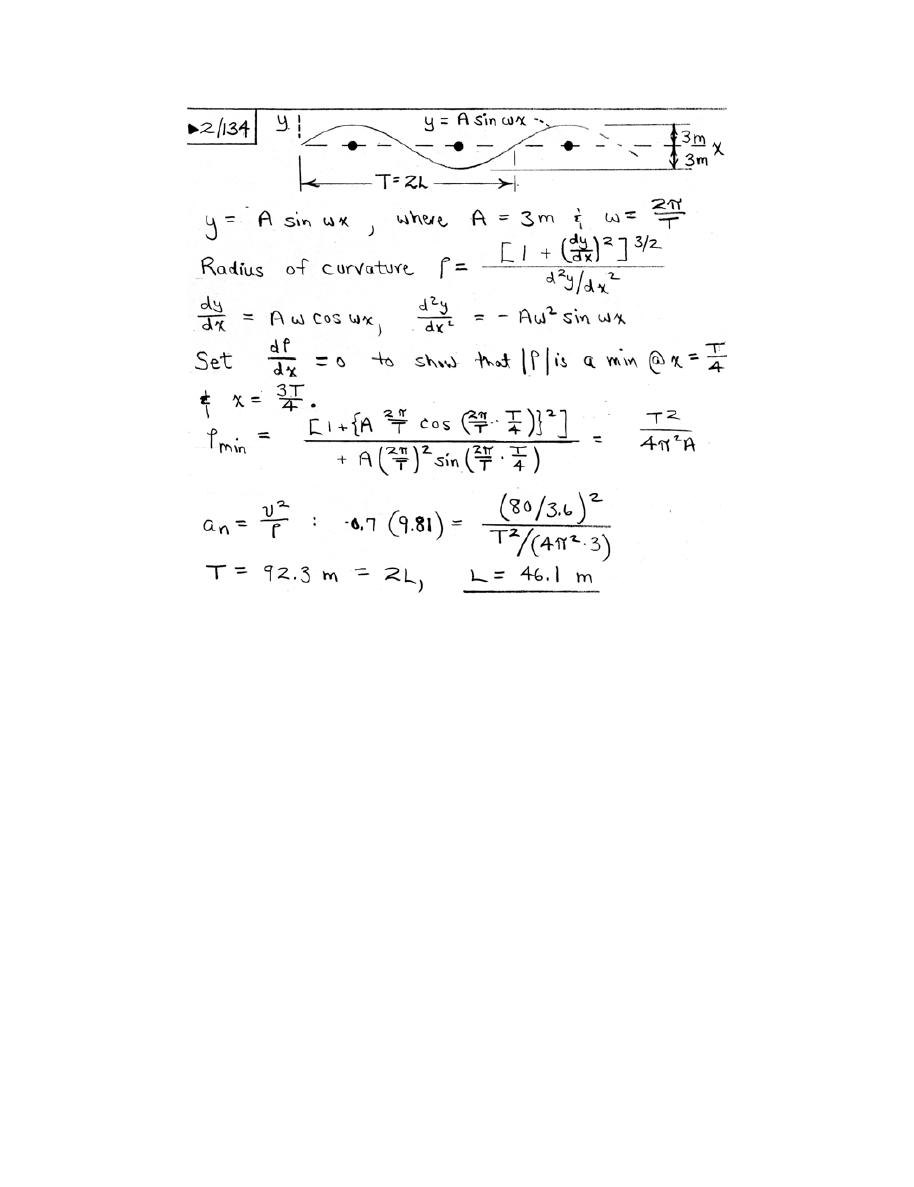 ▶2/134
y
y = A sin ωx
3m
x
3m
T=2L
y = A sin ωx , where A = 3m & ω = 2π/T
Radius of curvature ρ = [1 + (dy/dx)²]^3/2 / d²y/dx²
dy/dx = Aω cos ωx, d²y/dx² = - Aω² sin ωx
Set dρ/dx = 0 to show that |ρ| is a min @ x = T/4
& x = 3T/4.
ρmin = [1+{A 2π/T cos (2π/T · T/4)}²] / + A(2π/T)² sin(2π/T · T/4) = T²/4π²A
an = v²/ρ : 0.7 (9.81) = (80/3.6)² / T²/(4π²·3)
T = 92.3 m = 2L, L = 46.1 m